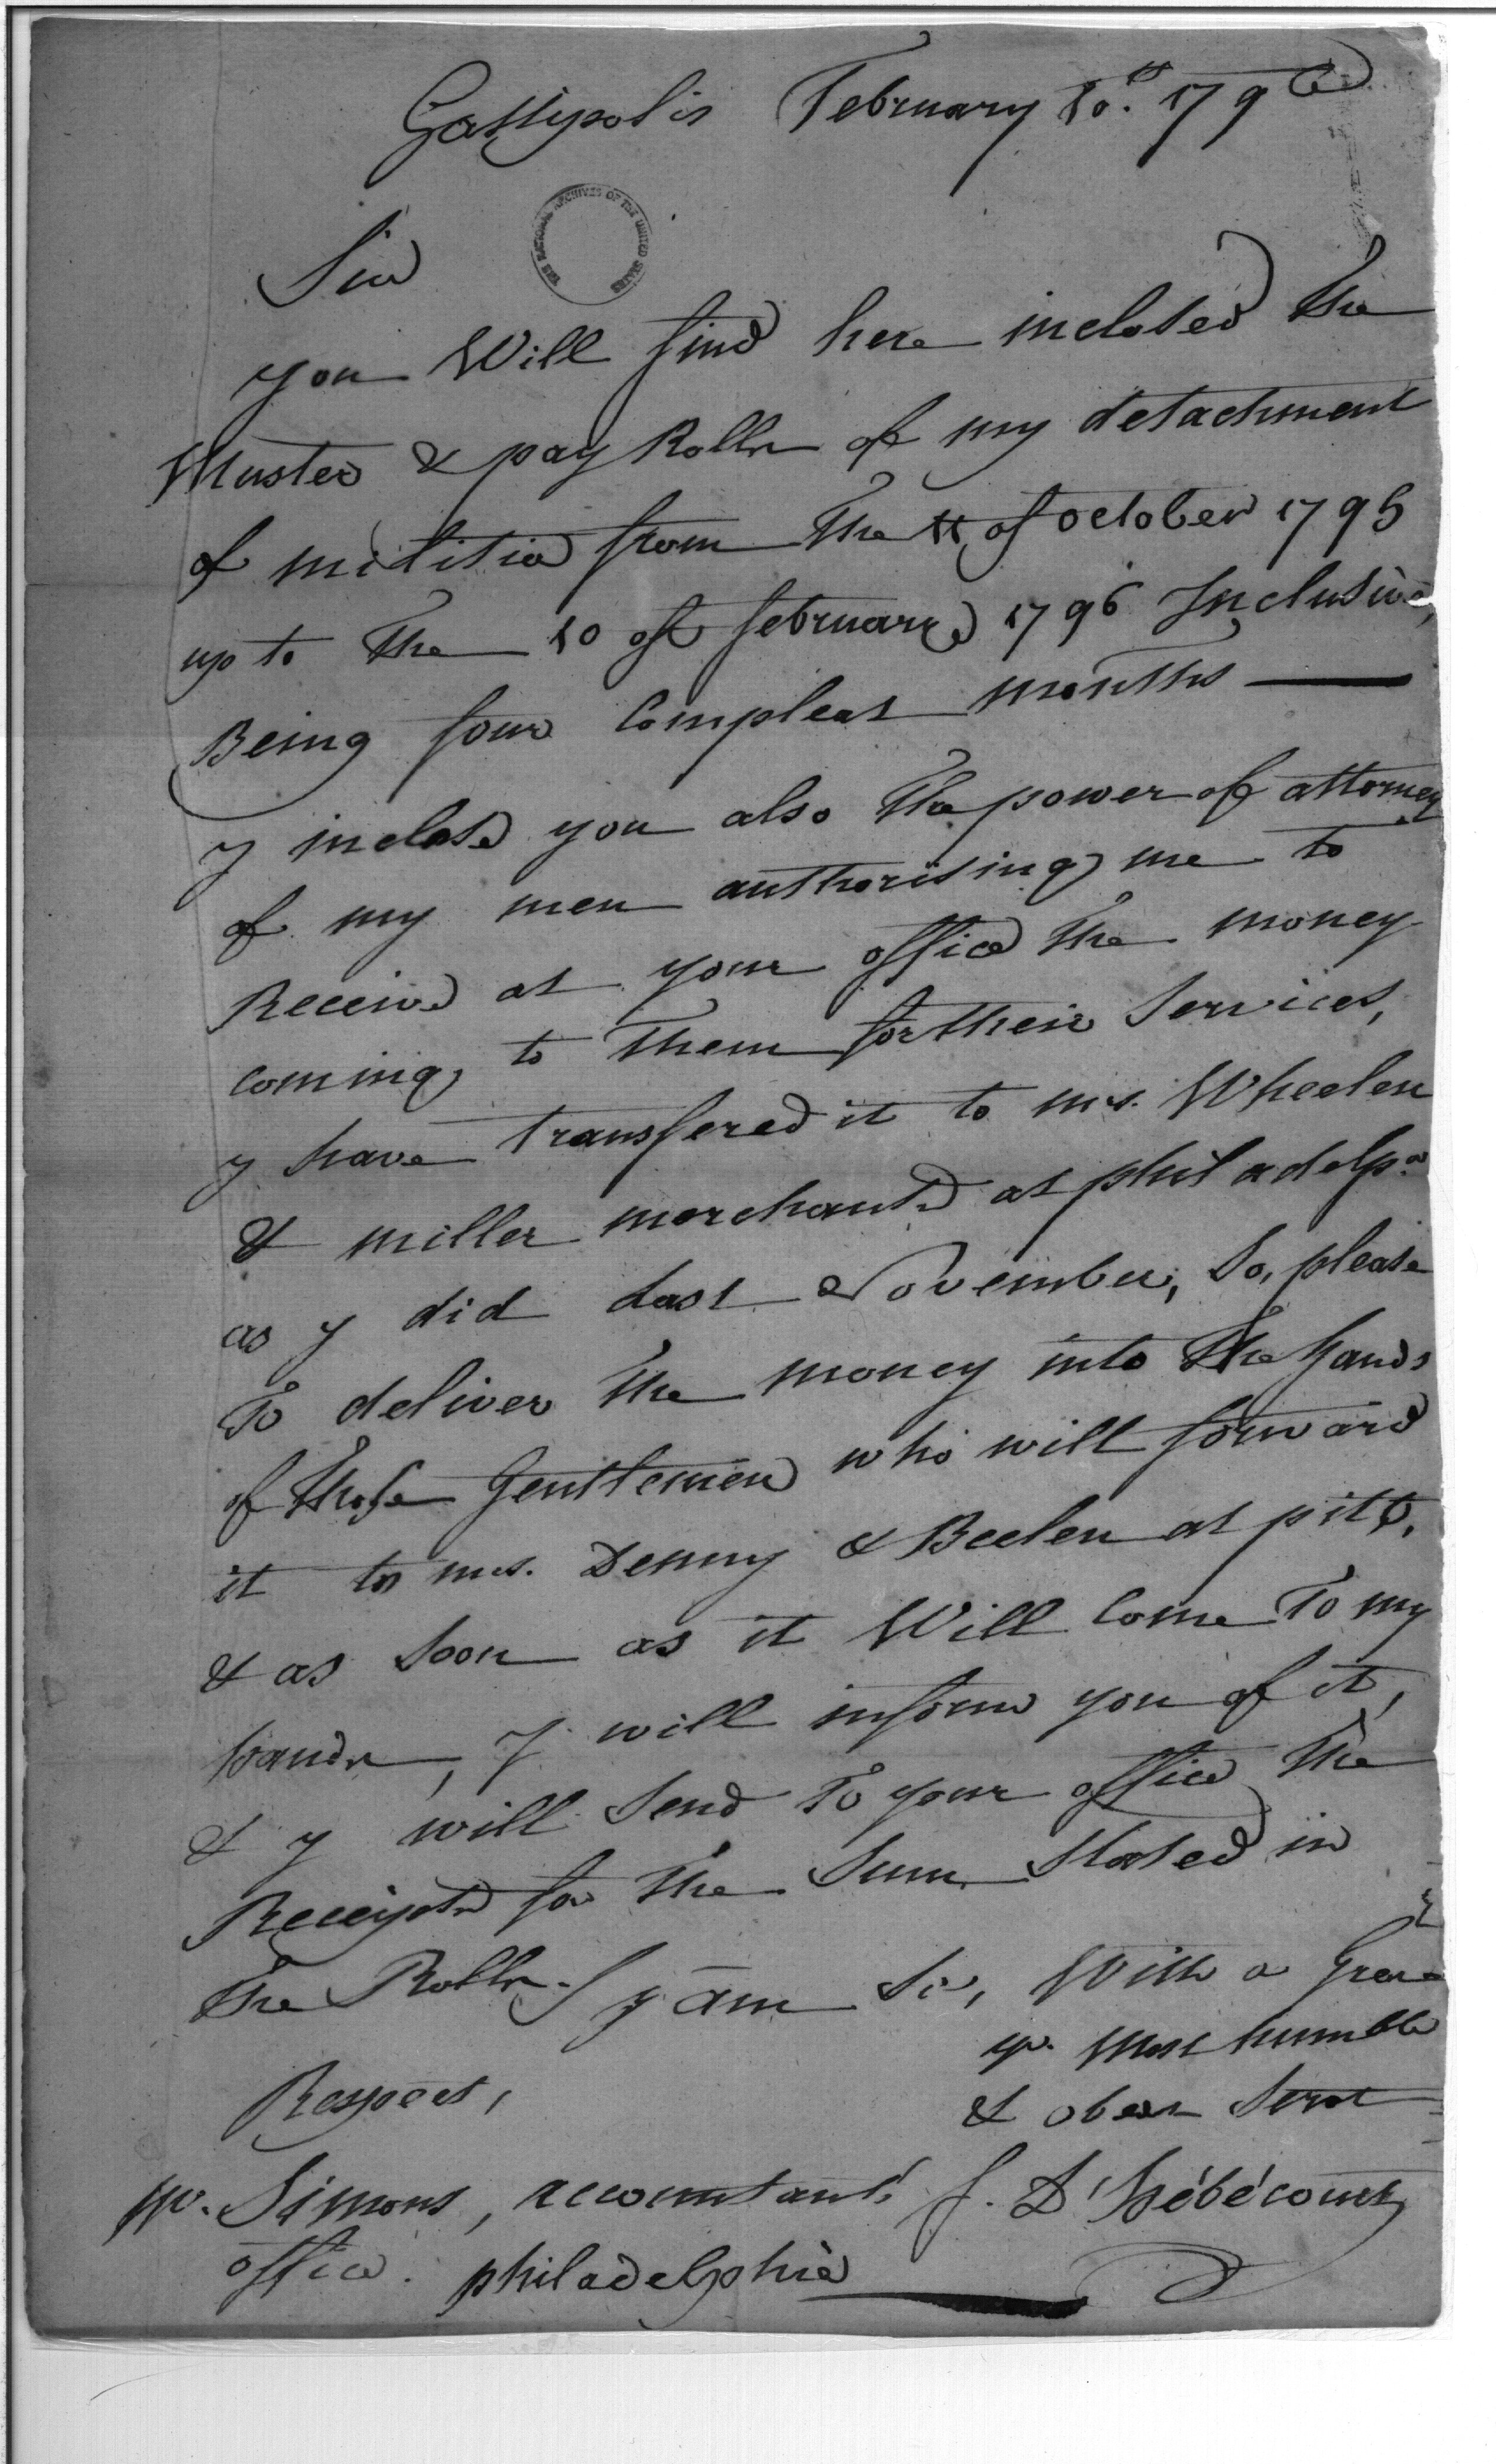 Gallypolis February 10.th 1796
THE NATIONAL ARCHIVES OF THE UNITED STATES
Sir
you Will find here inclosed the
Muster & pay Rolls of my detachment
of militia from the 11 of october 1795
up to the 10 of february 1796 Inclusive,
Being four Compleat months
y inclose you also the power of attorney
of my men authorising me to
Receive at your office the money
coming to them for their Services,
y have transfered it to mrs. Wheelen
& miller merchants at philadelp.a
as y did Last November, So, please
To deliver the money into the hands
of those Gentlemen who will forward
it to mrs. Denny & Beelen at pitt,
& as Soon as it Will Come To my
hands, y will inform you of it,
& y will Send To your office the
Receipts for the Sum Stated in
the Rolls. y am Sir, With a Great
Respect,
yr. Most humble
& obedt Servt
J. D'hébécourt
Mr. Simons, accountant's
office. philadelphia